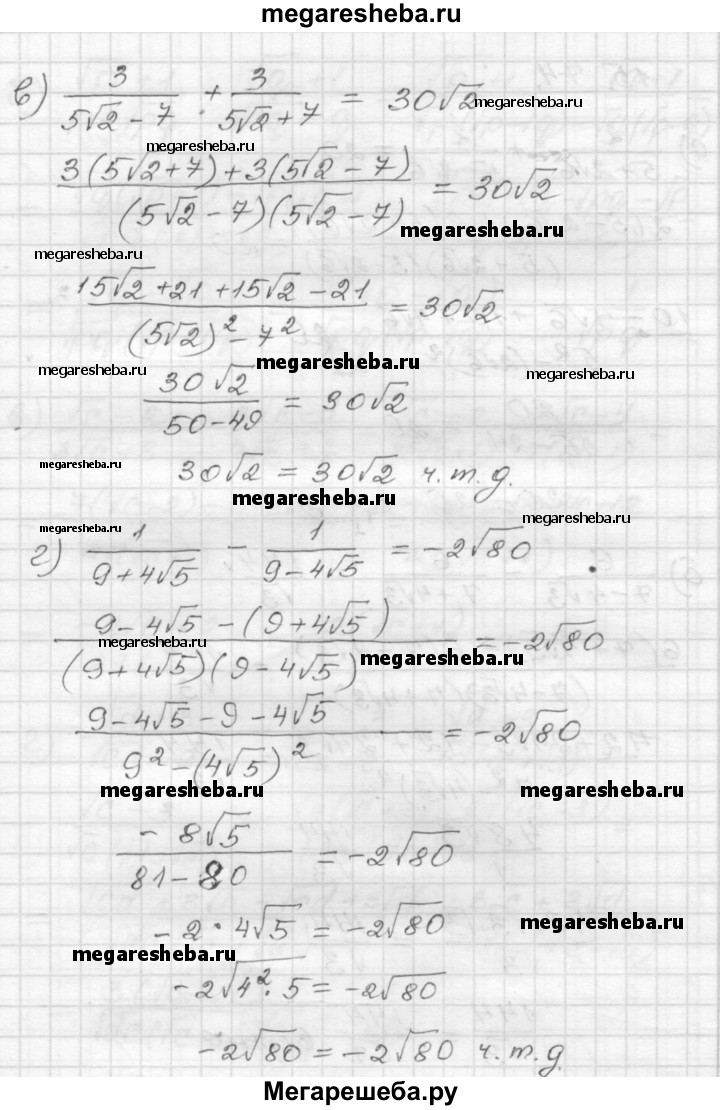 megaresheba.ru
в) 3/(5√2 - 7) + 3/(5√2 + 7) = 30√2 megaresheba.ru
megaresheba.ru
(3(5√2+7)+3(5√2-7))/((5√2-7)(5√2-7)) = 30√2
megaresheba.ru
megaresheba.ru
(15√2+21+15√2-21)/((5√2)²-7²) = 30√2
megaresheba.ru
megaresheba.ru megaresheba.ru
30√2/(50-49) = 30√2
megaresheba.ru 30√2 = 30√2 ч.т.д.
megaresheba.ru
megaresheba.ru
г) 1/(9+4√5) - 1/(9-4√5) = -2√80
(9-4√5-(9+4√5))/((9+4√5)(9-4√5)) = -2√80
megaresheba.ru megaresheba.ru
(9-4√5-9-4√5)/(9²-(4√5)²) = -2√80
megaresheba.ru megaresheba.ru
(-8√5)/(81-80) = -2√80
-2·4√5 = -2√80 megaresheba.ru
megaresheba.ru
-2√(4²·5) = -2√80
-2√80 = -2√80 ч.т.д
Мегарешеба.ру